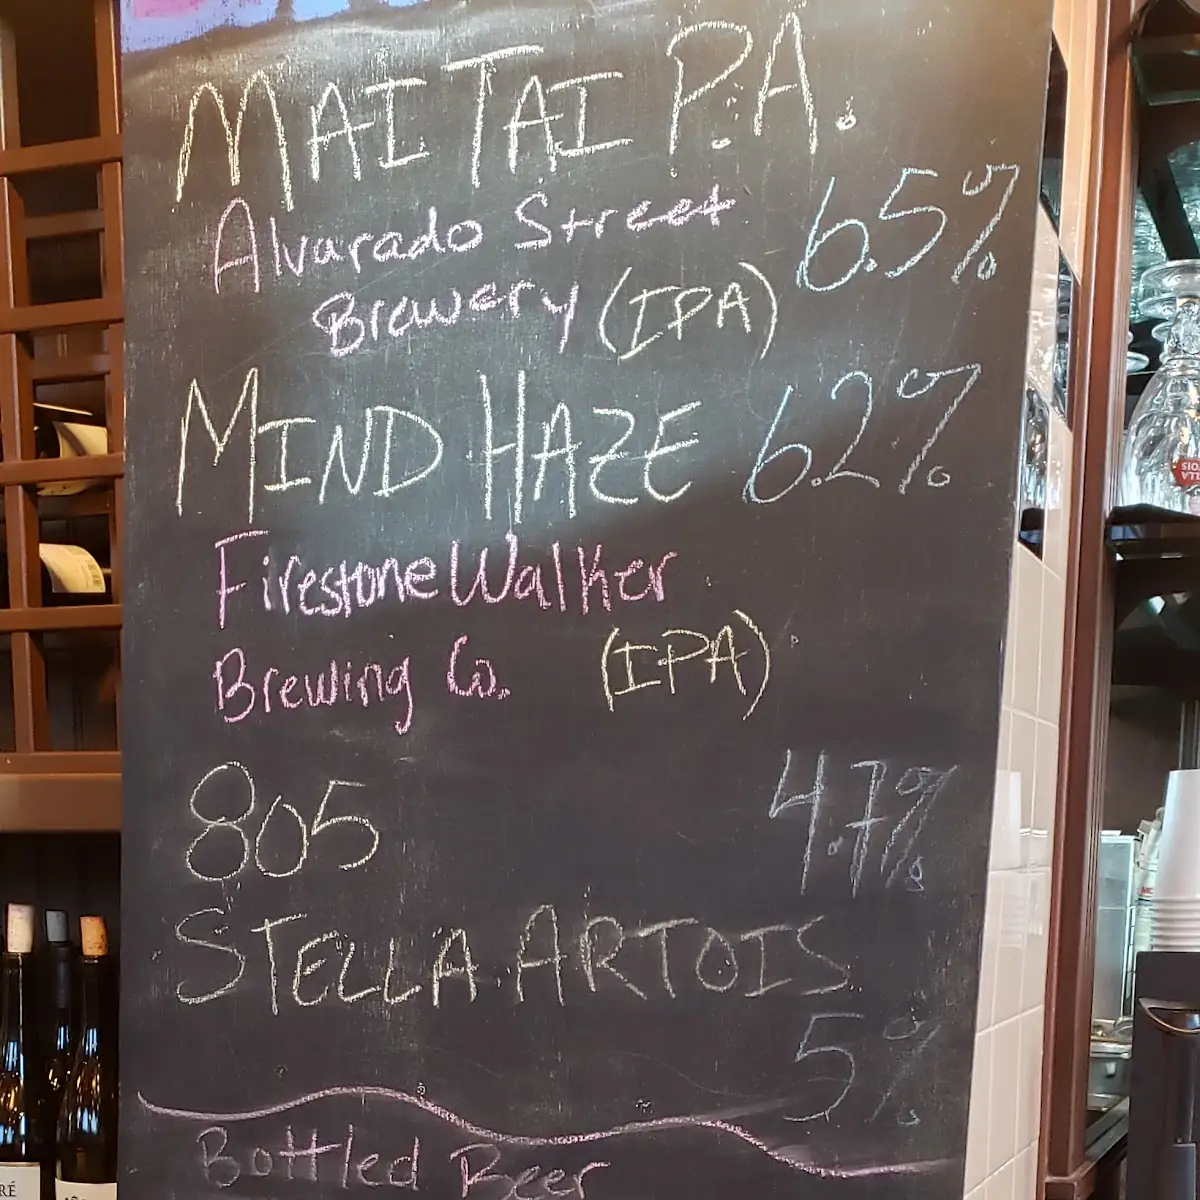 MAI TAI P.A.
Alvarado Street 6.5%
Brewery (IPA)
MIND HAZE 6.2%
Firestone Walker
Brewing Co. (IPA)
805 4.7%
STELLA ARTOIS
5%
Bottled Beer